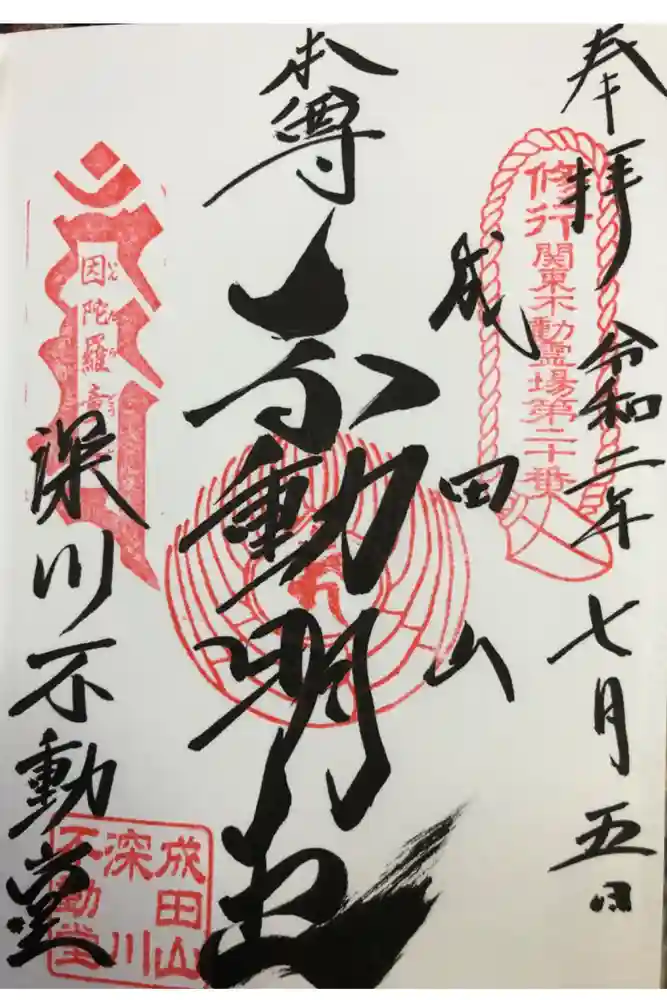 奉拝
令和二年七月五日
修行
関東不動霊場第二十番
成田山
本尊
不動明王
因陀羅童
いんだら
深川不動堂
成田山
深川
不動堂